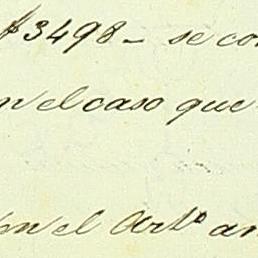 $3498– se con
en el caso que
con el Arto an